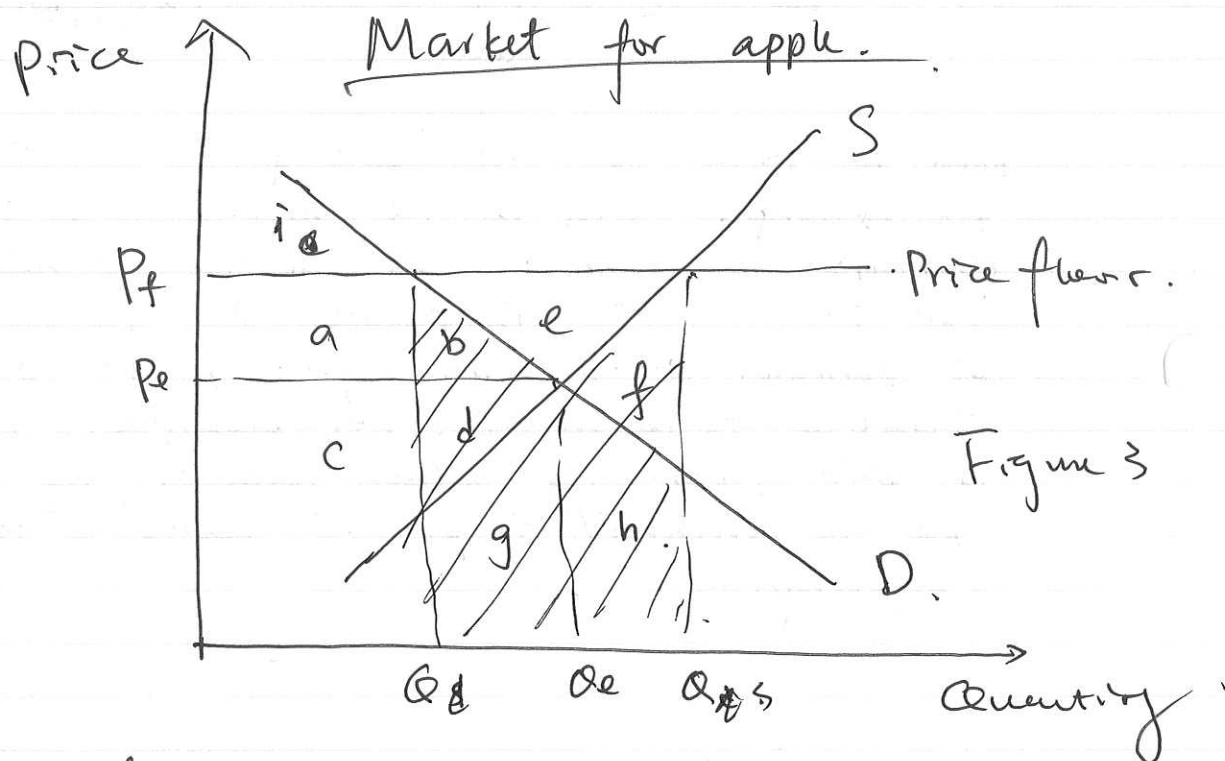 Price
Market for apple.
S
i
Pf
Price floor.
a
b
e
Pe
f
c
d
Figure 3
g
h.
D.
Qd
Qe
Qs
Quantity